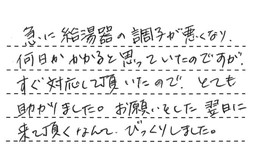 急に給湯器の調子が悪くなり、
何日かかかると思っていたのですが、
すぐ対応して頂いたので、とても
助かりました。お願いをした翌日に
来て頂くなんて、びっくりしました。